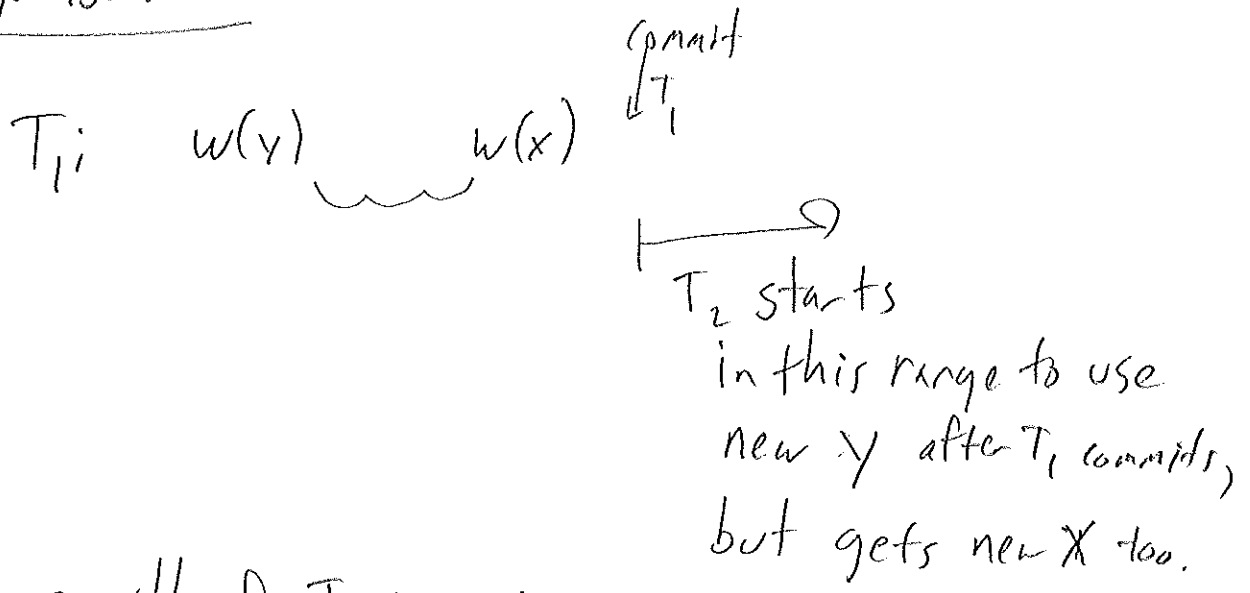 commit
T1
T1: w(y) w(x)
T2 starts
in this range to use
new y after T1 commits,
but gets new X too.